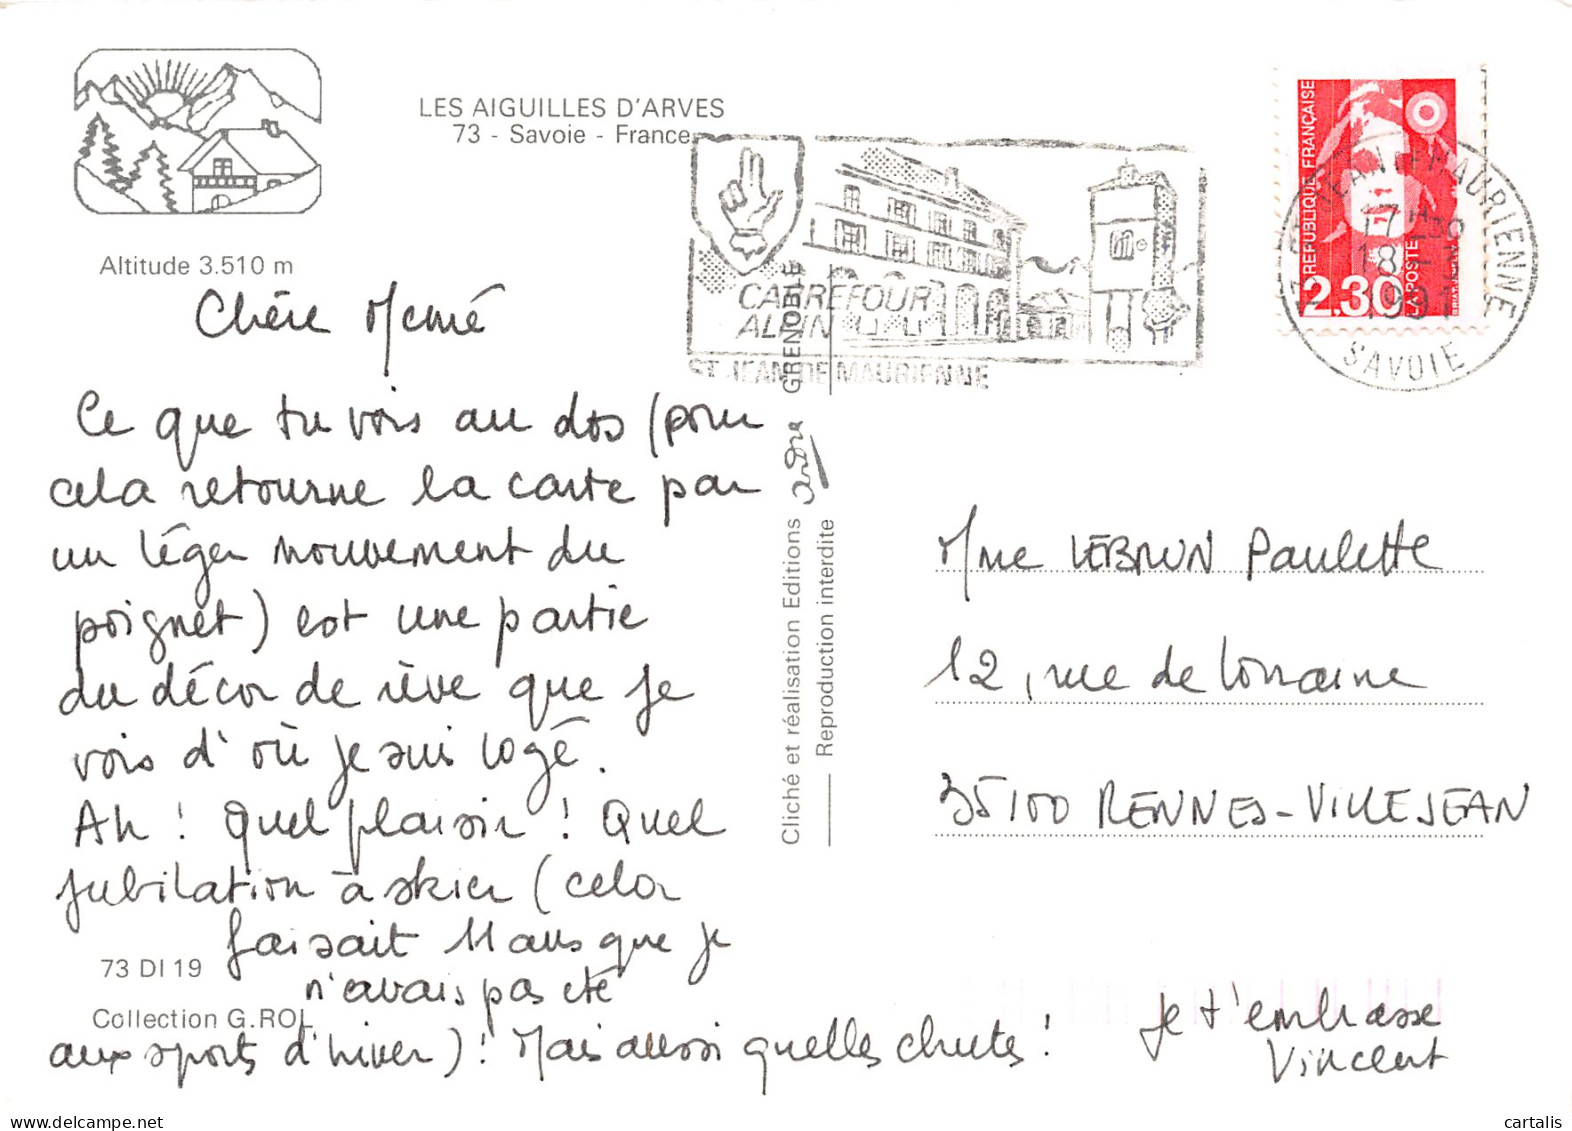 LES AIGUILLES D'ARVES
73 - Savoie - France
Altitude 3.510 m
CARREFOUR
ALPIN
ST JEAN DE MAURIENNE
RÉPUBLIQUE FRANÇAISE
LA POSTE
2.30
ST JEAN-MAURIENNE
17H30
18
1991
SAVOIE
Chère Mémé
Ce que tu vois au dos (pour
cela retourne la carte par
un léger mouvement du
poignet) est une partie
du décor de rêve que je
vois d'où je suis logé.
Ah ! Quel plaisir ! Quel
jubilation à skier (cela
faisait 11 ans que je
n'avais pas été
aux sports d'hiver) ! Mais aussi quelles chutes !
Je t'embrasse
Vincent
73 DI 19
Collection G.ROL
Cliché et réalisation Editions andre GRENOBLE
Reproduction interdite
Mme LEBRUN Paulette
12, rue de Lorraine
35100 RENNES-VILLEJEAN
cartalis